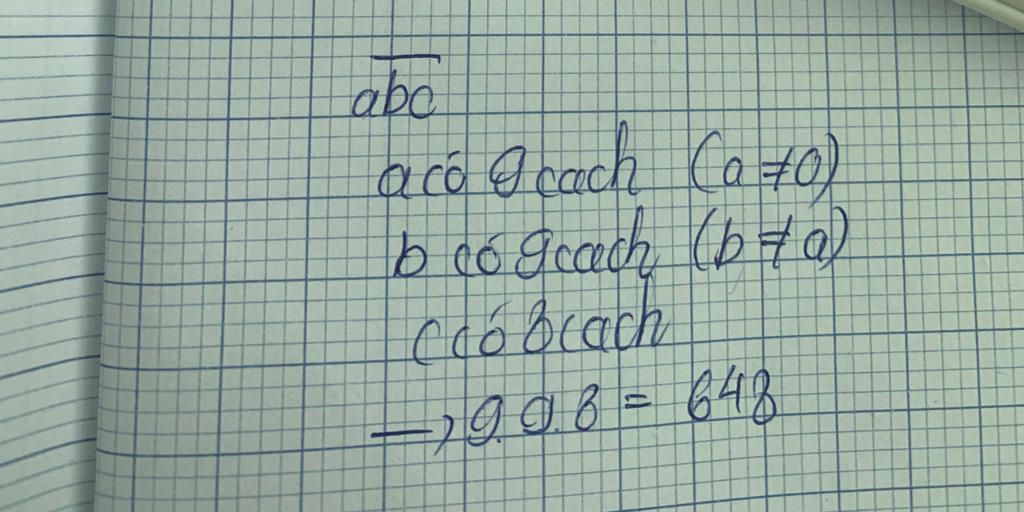 abc
a có 9 cach (a ≠ 0)
b có 9 cach (b ≠ a)
c có 8 cach
→ 9.9.8 = 648